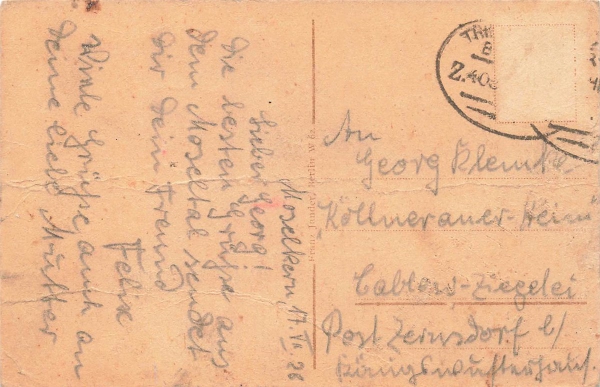 Moselkern 17.VII.26
Lieber Georg!
Die besten Grüße aus
dem Moseltal sendet
Dir Dein Freund
Felix
Viele Grüße auch an
Deine liebe Mutter
Berlin W
TRI
Z.403
An
Georg Klemke
"Köllnerauer-Heim"
Cablow-Ziegelei
Post Zernsdorf b/
Königswusterhaus.